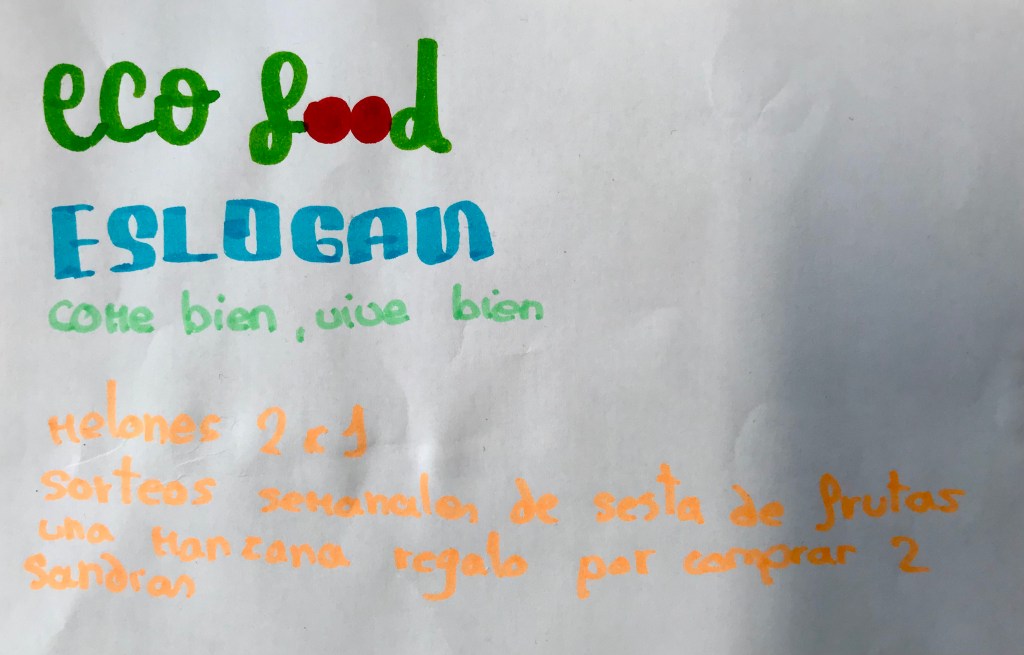 eco food
ESLOGAN
come bien, vive bien
Melones 2x1
sorteos semanales de sesta de frutas
una manzana regalo por comprar 2
sandras